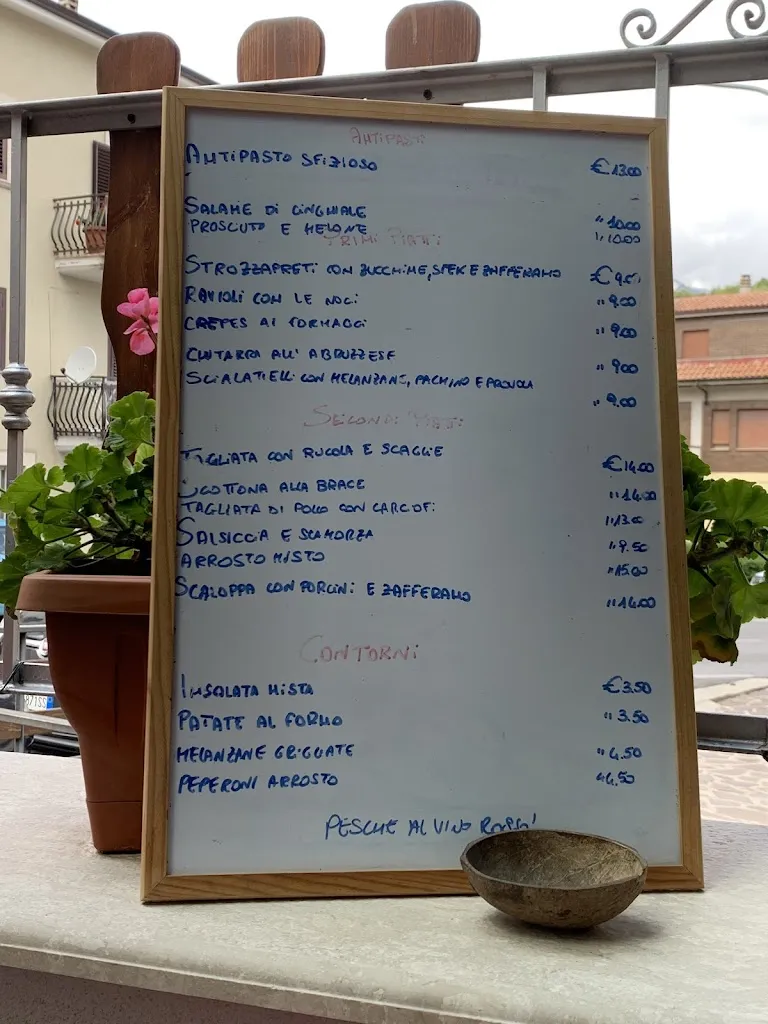 ANTIPASTI
ANTIPASTO SFIZIOSO €13.00
SALAME DI CINGHIALE " 10.00
PROSCUTO E MELONE " 10.00
PRIMI PIATTI
STROZZAPRETI CON ZUCCHINE, SPEK E ZAFFERANO € 9.00
RAVIOLI CON LE NOCI " 9.00
CREPES AI FORMAGGI " 9.00
CHITARRA ALL' ABRUZZESE " 9.00
SCIALATIELLI CON MELANZANE, PACHINO E PROVOLA " 9.00
SECONDI PIATTI
TAGLIATA CON RUCOLA E SCAGLIE €14.00
SCOTTONA ALLA BRACE " 14.00
TAGLIATA DI POLLO CON CARCIOFI " 13.00
SALSICCIA E SCAMORZA " 9.50
ARROSTO MISTO " 15.00
SCALOPPA CON PORCINI E ZAFFERANO " 14.00
CONTORNI
INSALATA MISTA €3.50
PATATE AL FORNO " 3.50
MELANZANE GRIGLIATE " 4.50
PEPERONI ARROSTO " 4.50
PESCHE AL VINO ROSSO